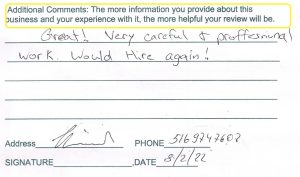 Additional Comments: The more information you provide about this
business and your experience with it, the more helpful your review will be.
Great! Very careful & proffessional
work. Would Hire again!
Address PHONE 5169747607
SIGNATURE ,DATE 8/2/22